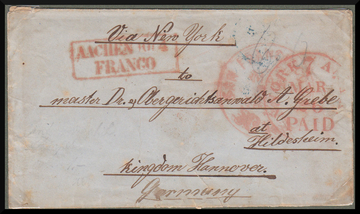 Via New York
AACHEN
FRANCO
YORK
PAID
to
master Dr. Obergerichtsanwald A. Grebe
at
Hildesheim.
Kingdom Hannover.
Germany